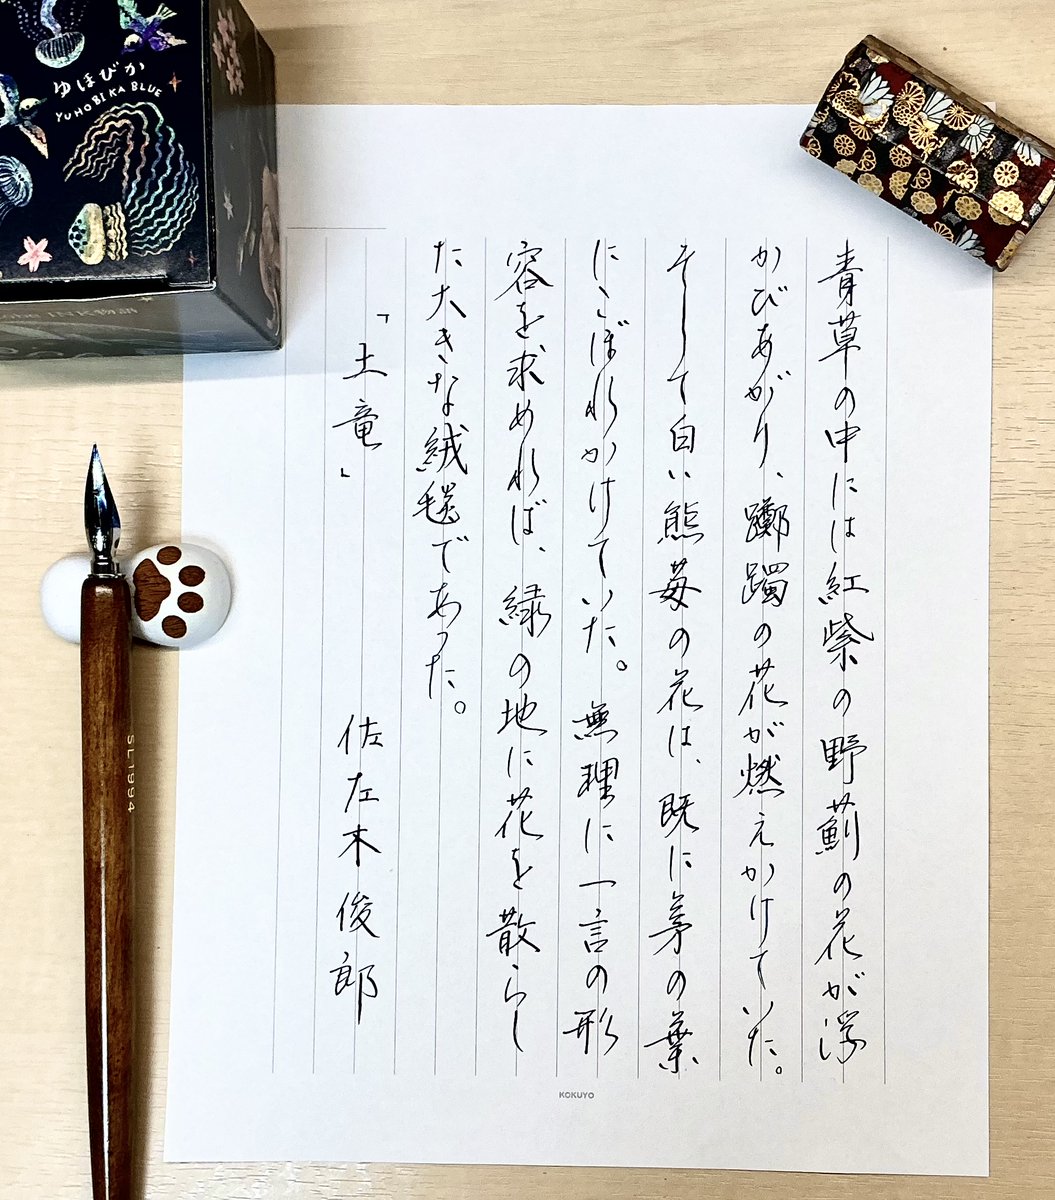 ゆほびか
YUHOBIKA BLUE
INK物語
青草の中には紅紫の野薊の花が浮
かびあがり、躑躅の花が燃えかけていた。
そして白い熊苺の花は、既に茅の葉
にこぼれかけていた。無理に一言の形
容を求めれば、緑の地に花を散らし
た大きな絨毯であった。
「土竜」 佐左木俊郎
SL1994
KOKUYO